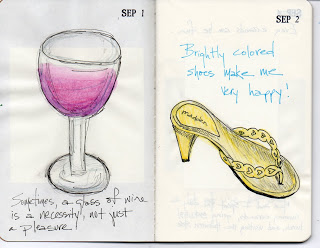 SEP 1
Sometimes, a glass of wine
is a necessity, not just
a pleasure!
SEP 2
Brightly colored
shoes make me
very happy!